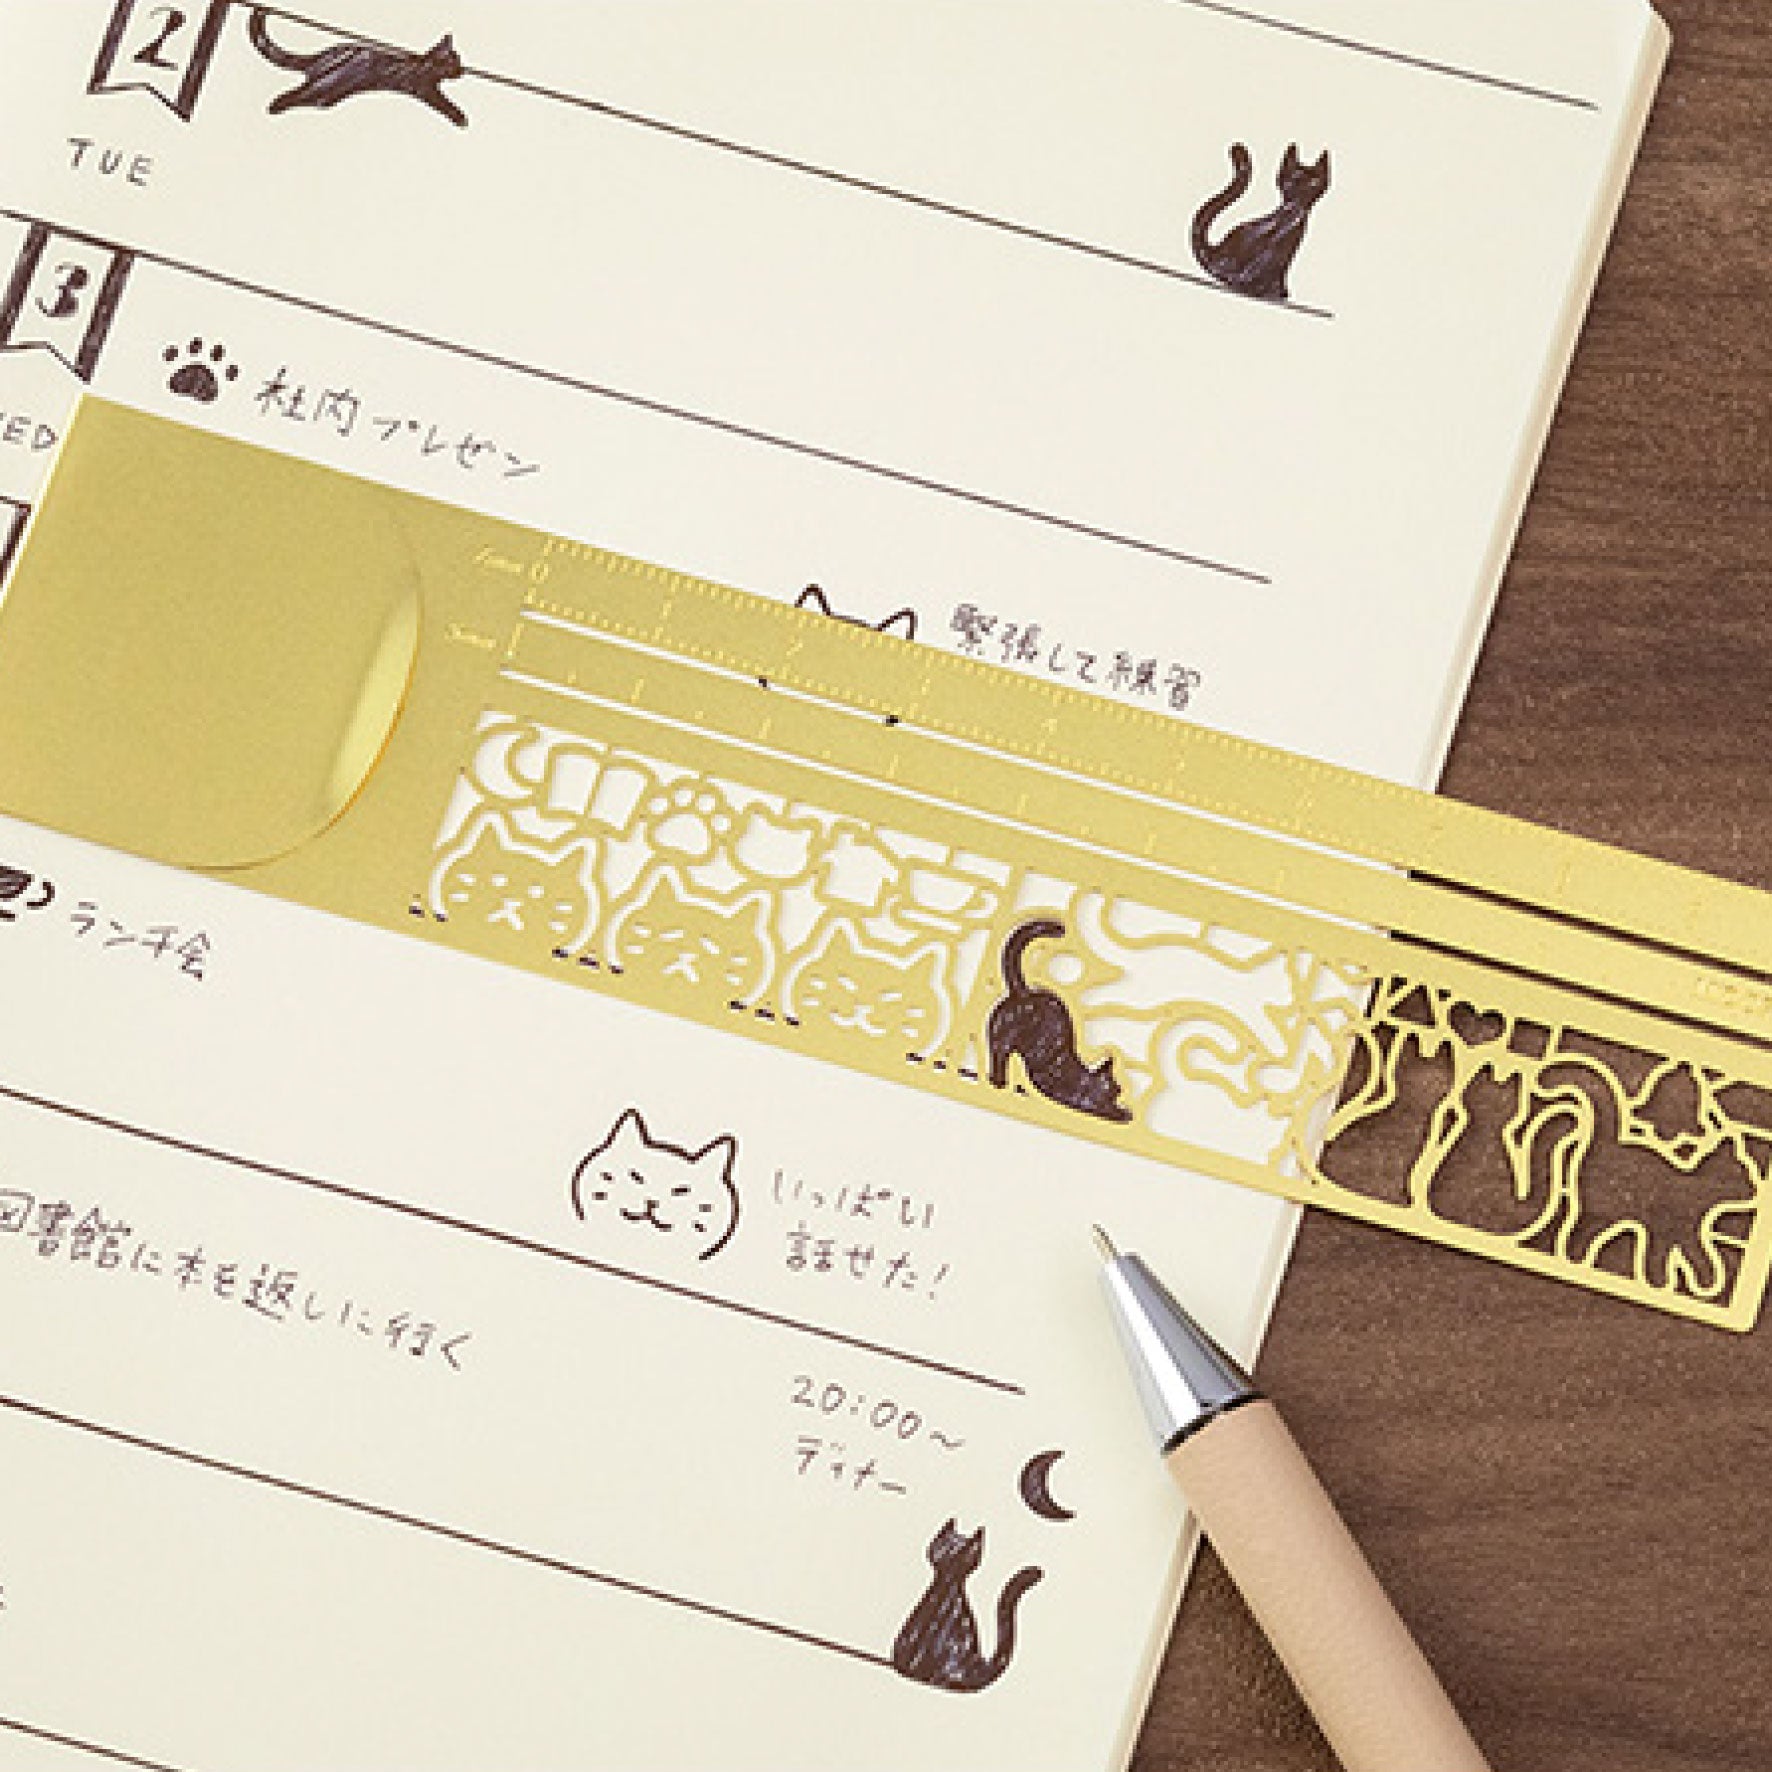 2
TUE
3
社内プレゼン
緊張して練習
ランチ会
いっぱい
話せた!
図書館に本を返しに行く
20:00〜
ディナー